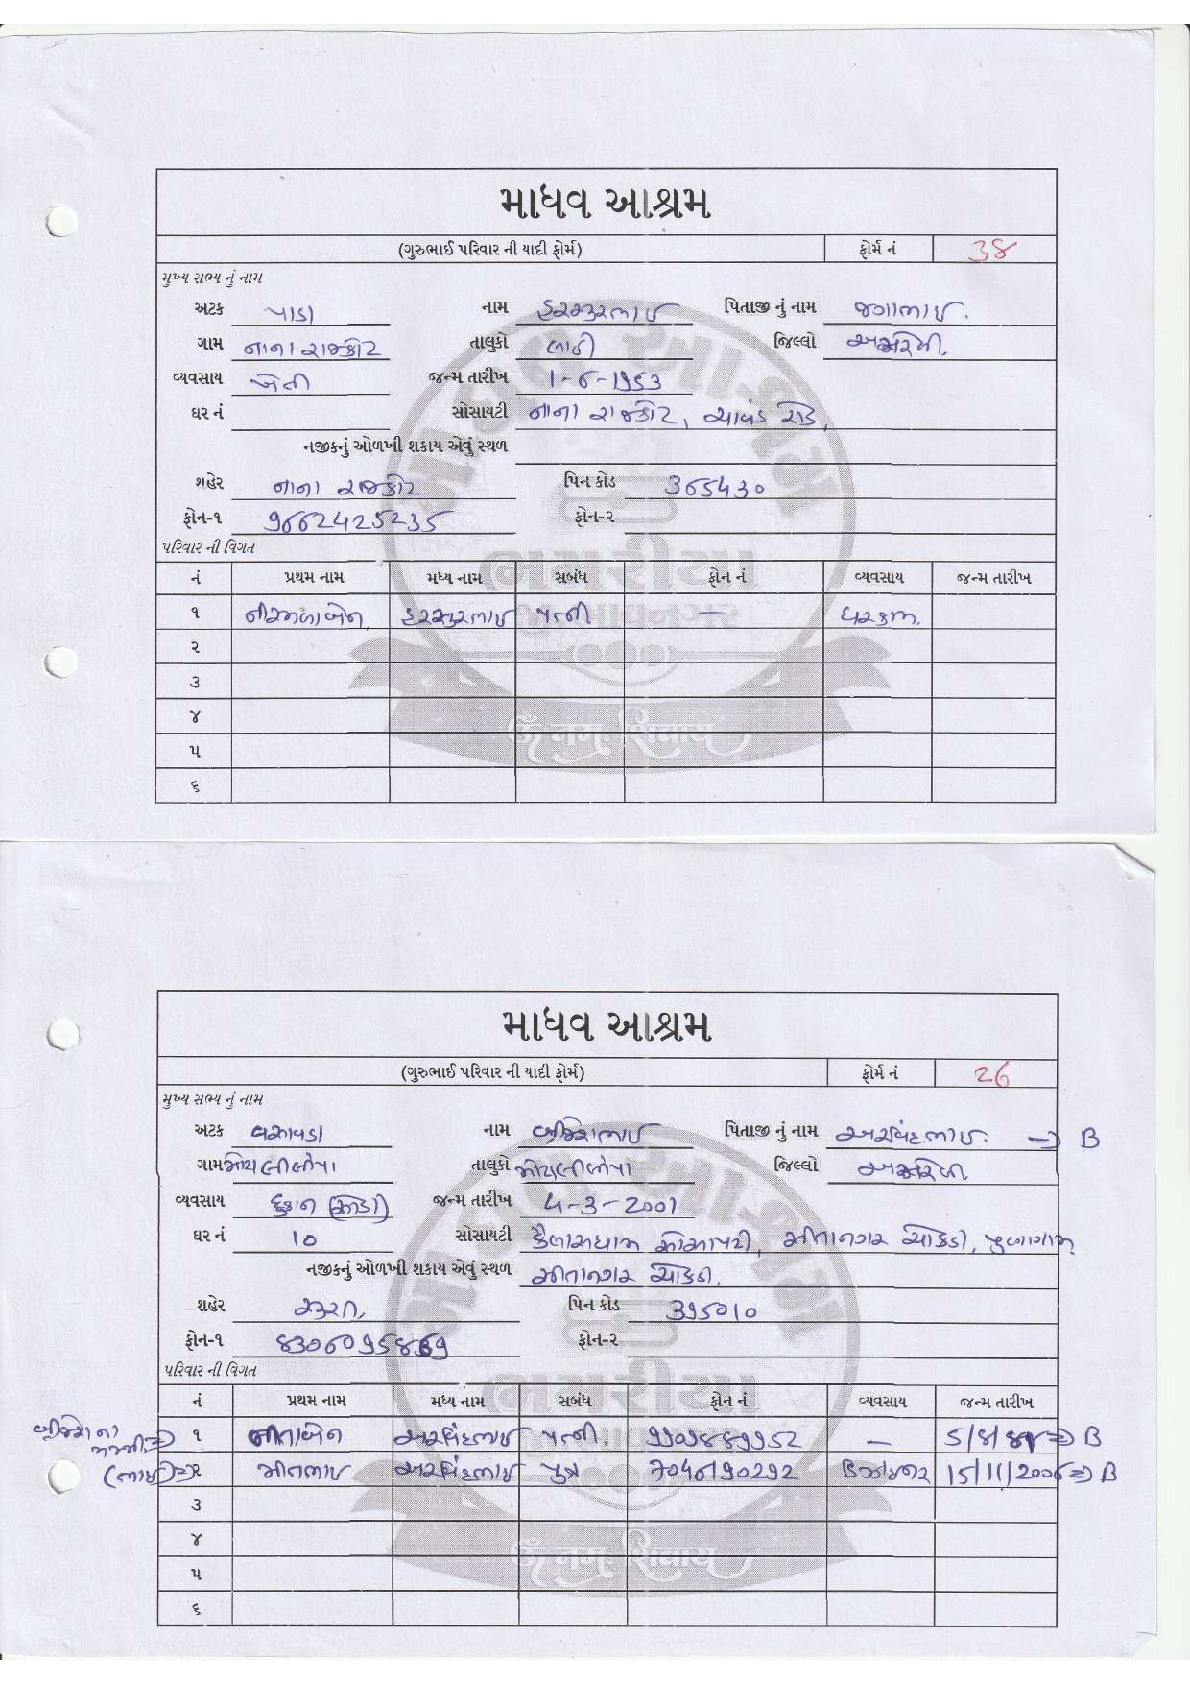 માધવ આશ્રમ
(ગુરુભાઈ પરિવાર ની યાદી ફોર્મ) ફોર્મ નં 38
મુખ્ય સભ્ય નું નામ
અટક પાડા નામ હરસુરભાઈ પિતાજી નું નામ જગાભાઈ.
ગામ નાના રાજકોટ તાલુકો લાઠી જિલ્લો અમરેલી.
વ્યવસાય ખેતી જન્મ તારીખ 1-6-1953
ઘર નં સોસાયટી નાના રાજકોટ, ચાવંડ રોડ,
નજીકનું ઓળખી શકાય એવું સ્થળ
શહેર નાના રાજકોટ પિન કોડ 365430
ફોન-૧ 9662425235 ફોન-૨
પરિવાર ની વિગત
નં પ્રથમ નામ મધ્ય નામ સબંધ ફોન નં વ્યવસાય જન્મ તારીખ
૧ હરસુરભાઈ પત્ની — ઘરકામ.
૨
૩
૪
૫
૬
ૐ નમઃ શિવાય
માધવ આશ્રમ
(ગુરુભાઈ પરિવાર ની યાદી ફોર્મ) ફોર્મ નં 26
મુખ્ય સભ્ય નું નામ
અટક નામ બ્રીજેશભાઈ પિતાજી નું નામ અરવિંદભાઈ. → B
ગામ મોટા લીલીયા તાલુકો મોટા લીલીયા જિલ્લો અમરેલી.
વ્યવસાય દુકાન જન્મ તારીખ 4-3-2001
ઘર નં 10 સોસાયટી કૈલાસધામ સોસાયટી, સીતાનગર ચોકડી, પુણાગામ
નજીકનું ઓળખી શકાય એવું સ્થળ સીતાનગર ચોકડી.
શહેર સુરત, પિન કોડ 395010
ફોન-૧ ફોન-૨
પરિવાર ની વિગત
નં પ્રથમ નામ મધ્ય નામ સબંધ ફોન નં વ્યવસાય જન્મ તારીખ
બ્રીજેશ ના
મમ્મી ⇒ ૧ અરવિંદભાઈ પત્ની. — ⇒ B
(ભાઈ) ⇒ ૨ મીતભાઈ અરવિંદભાઈ પુત્ર 15/11/2006 ⇒ B
૩
૪
૫
૬
ૐ નમઃ શિવાય